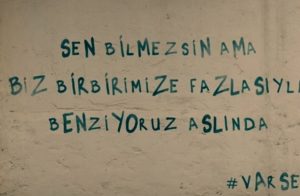 SEN BİLMEZSİN AMA
BİZ BİRBİRİMİZE FAZLASIYL
BENZİYORUZ ASLINDA
#VARSE